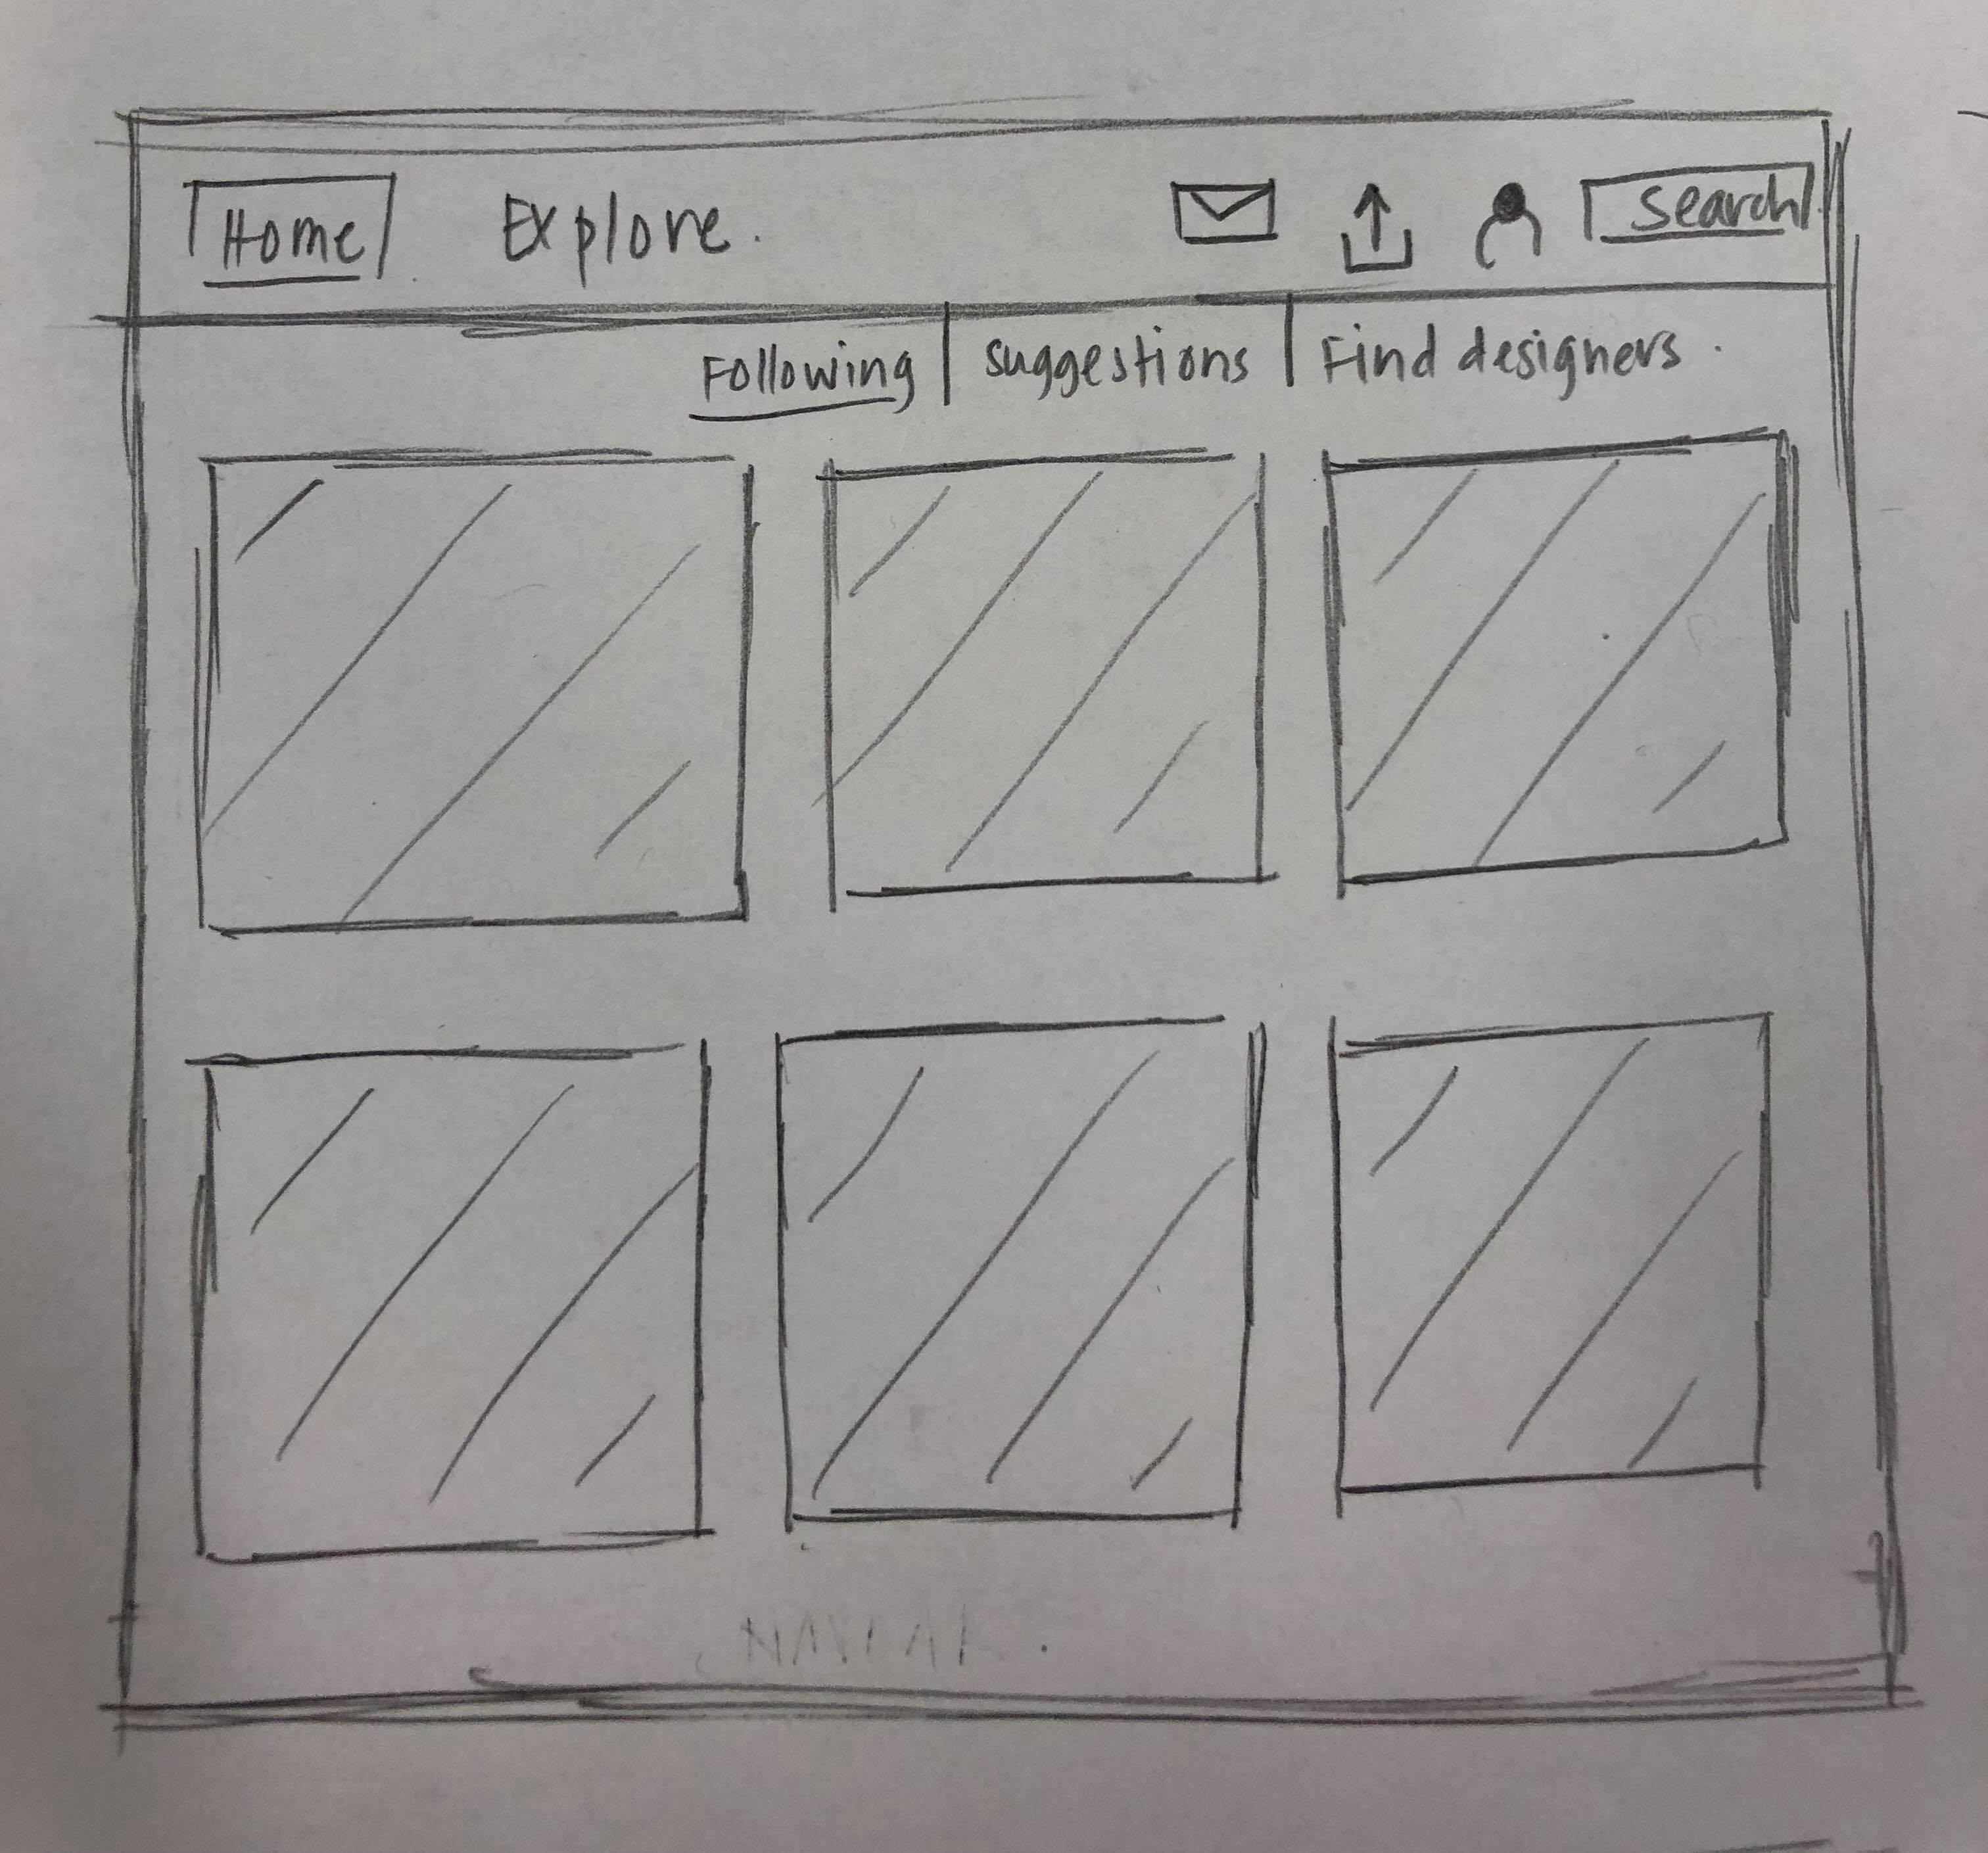 Home Explore. Search
Following | Suggestions | Find designers.